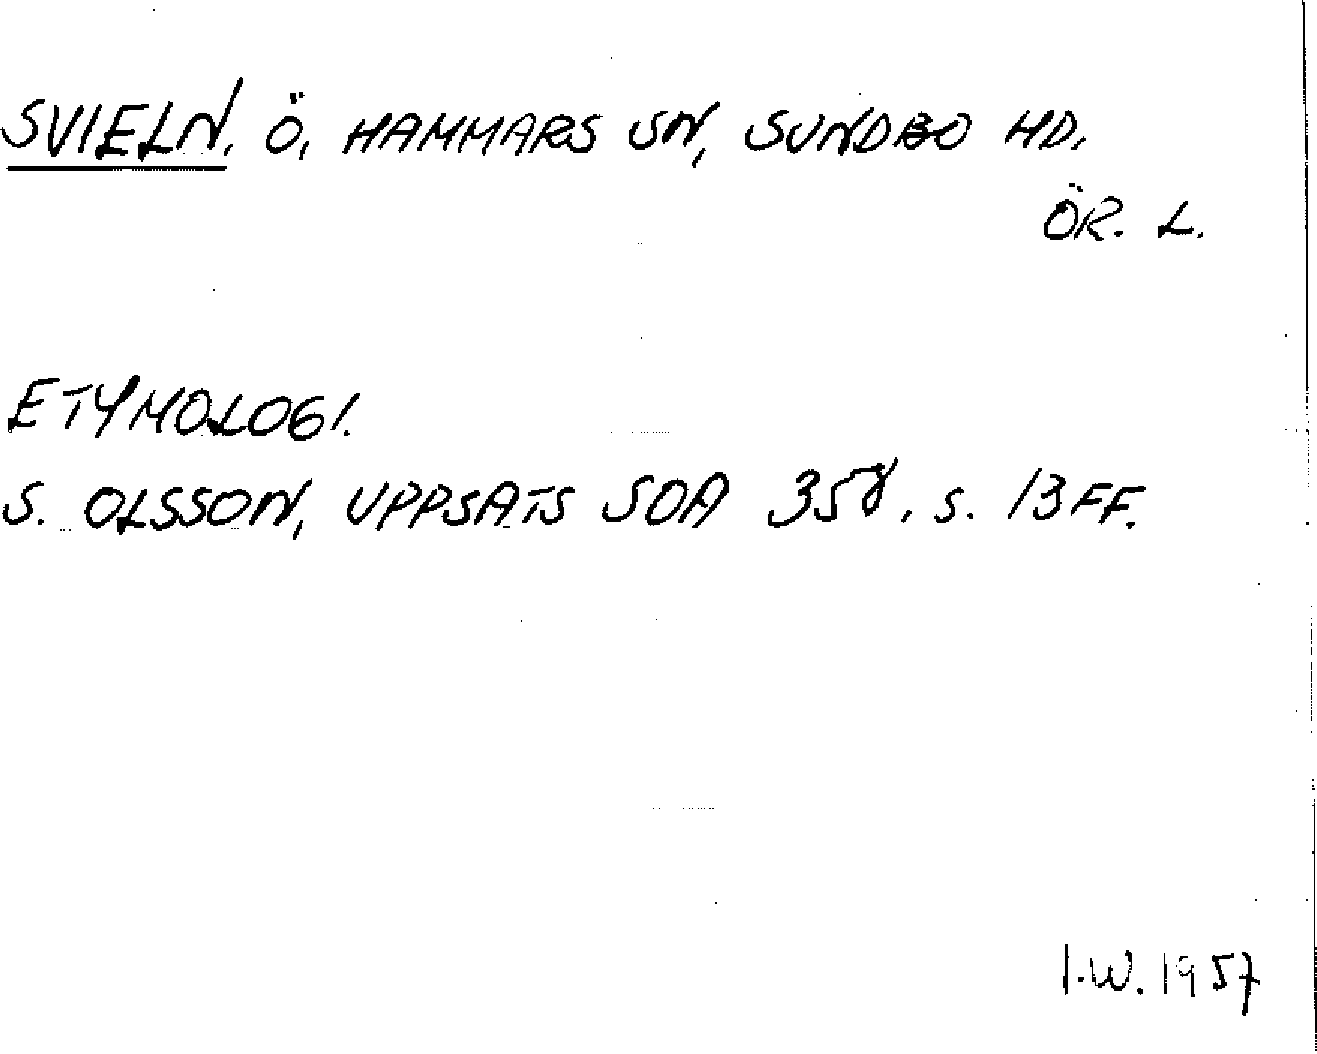 SVIELN, Ö, HAMMARS SN, SUNDBO HD,
ÖR. L.
ETYMOLOGI.
S. OLSSON, UPPSATS SOA 358, S. 13FF.
I.W. 1957